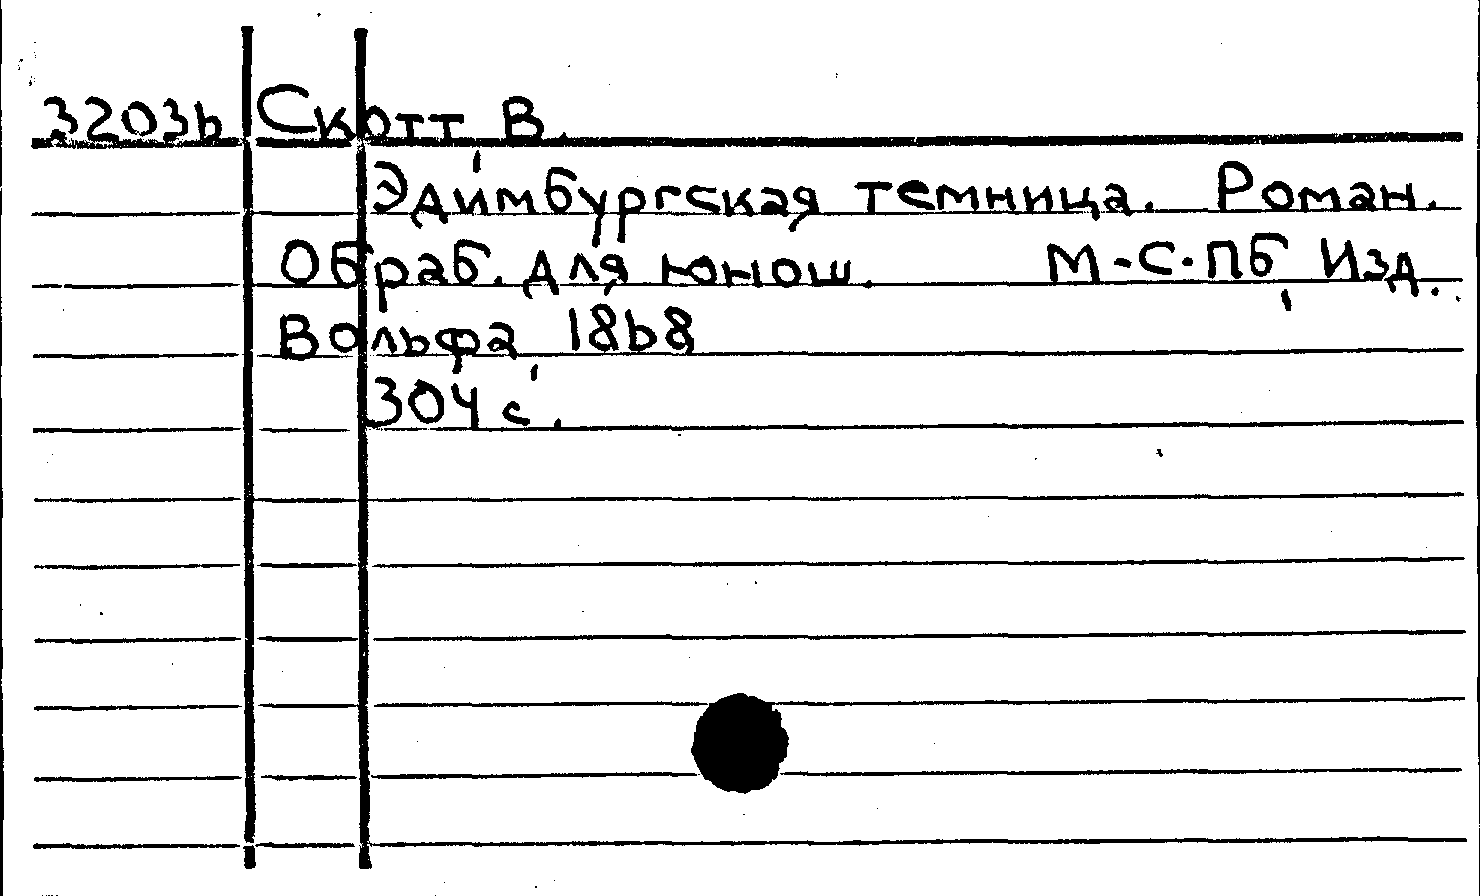 32036 Скотт, В.
Эдимбургская темница. Роман.
Обраб. для юнош. М.-С.-Пб, Изд.
Вольфа, 1868
304 с.